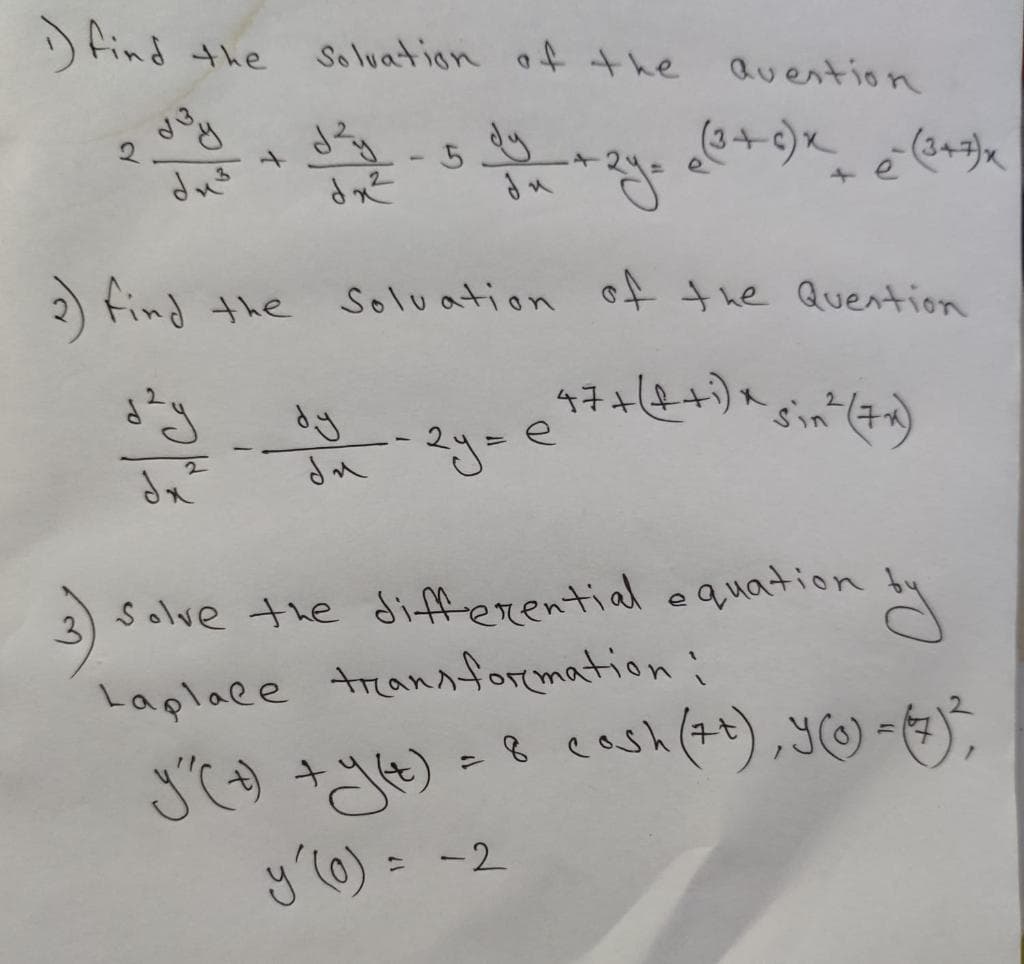 1) find the soluation of the avention
2 d³y/dx³ + d²y/dx² - 5 dy/dx + 2y = e^(3+6)x + e^-(3+7)x
2) find the soluation of the Quention
d²y/dx² - dy/dx - 2y = e^47+(7+i)x sin²(7x)
3) solve the differential equation by
Laplace transformation:
y''(t) + y(t) = 8 cosh(7t), y(0) = (7)²,
y'(0) = -2